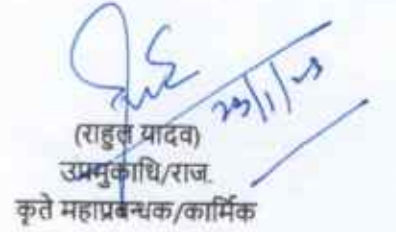 (राहुल यादव)
उपमुकाधि/राज.
कृते महाप्रबन्धक/कार्मिक